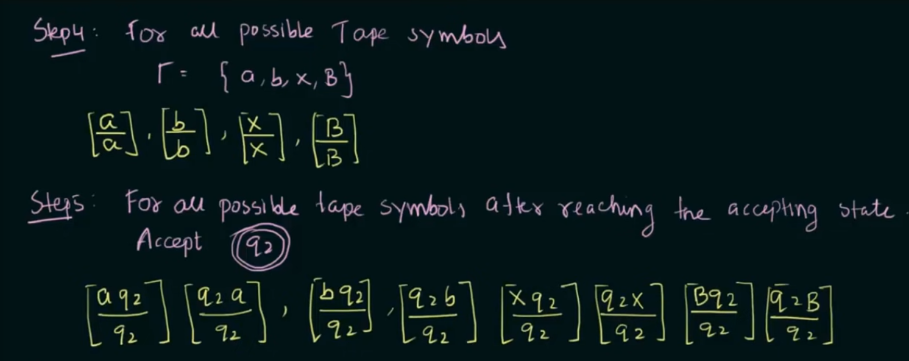 Step4: For all possible Tape symbols
Γ = { a, b, x, B }
[a/a], [b/b], [x/x], [B/B]
Step5: For all possible tape symbols after reaching the accepting state.
Accept q2
[aq2/q2] [q2a/q2], [bq2/q2], [q2b/q2] [xq2/q2] [q2x/q2] [Bq2/q2] [q2B/q2]